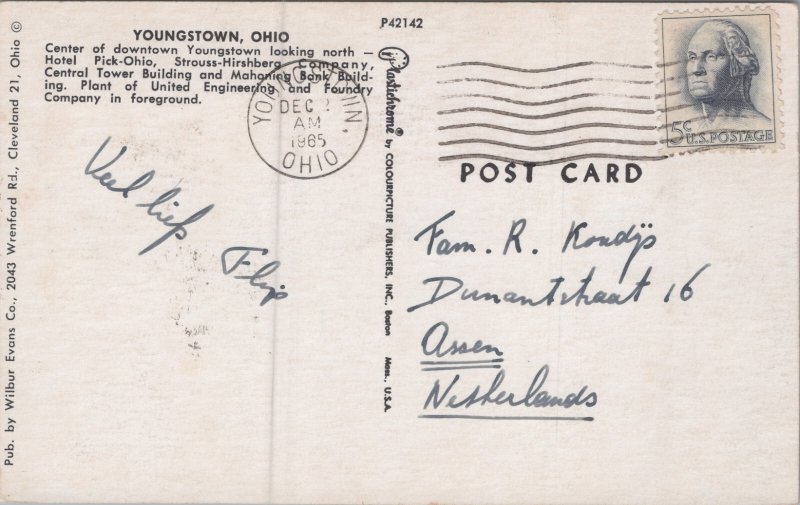 YOUNGSTOWN, OHIO
Center of downtown Youngstown looking north —
Hotel Pick-Ohio, Strouss-Hirshberg Company,
Central Tower Building and Mahoning Bank Build-
ing. Plant of United Engineering and Foundry
Company in foreground.
P42142
Pub. by Wilbur Evans Co., 2043 Wrenford Rd., Cleveland 21, Ohio ©
Plastichrome® by COLOURPICTURE PUBLISHERS, INC., Boston Mass., U.S.A.
YOUNGSTOWN
DEC 2
AM
1965
OHIO
5c U.S. POSTAGE
POST CARD
Veel liefs
Flip
Fam. R. Kondijs
Dunantstraat 16
Assen
Netherlands